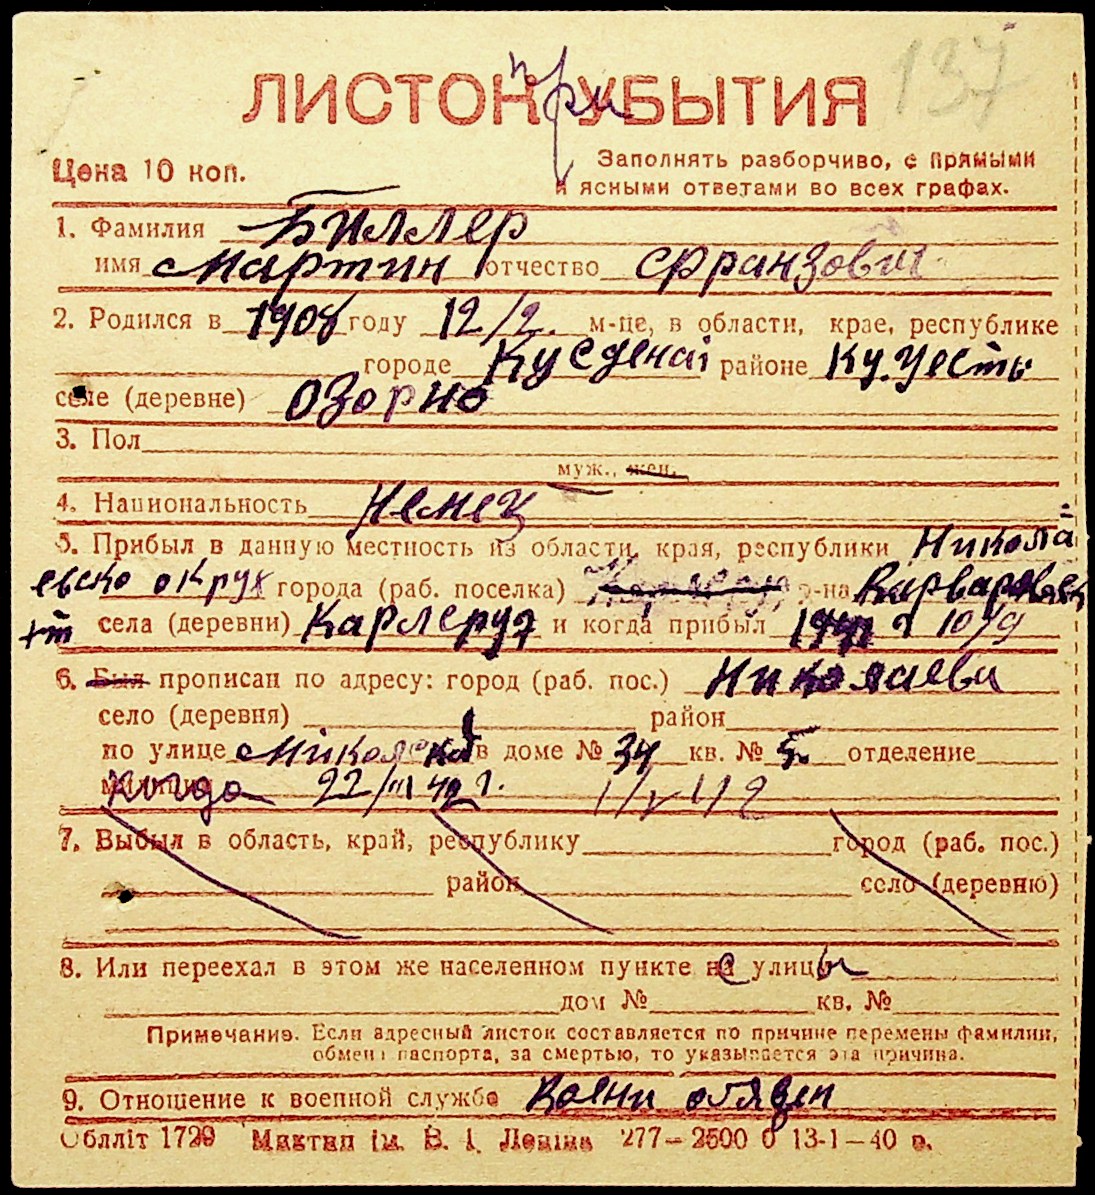 137
ЛИСТОК при УБЫТИЯ
Цена 10 коп.
Заполнять разборчиво, с прямыми
и ясными ответами во всех графах.
1. Фамилия Биллер
имя Мартин отчество Францович
2. Родился в 1908 году 12/2. м-це, в области, крае, республике
городе районе
селе (деревне) Озорно
3. Пол
муж., жен.
4. Национальность Немец
5. Прибыл в данную местность из области, края, республики Никола
евско округ города (раб. поселка) р-на
села (деревни) Карлеруэ и когда прибыл
6. Был прописан по адресу: город (раб. пос.) Николаеви
село (деревня) район
по улице в доме № 34 кв. № 5 отделение
милиции когда 22/III 42 г.
7. Выбыл в область, край, республику город (раб. пос.)
район село (деревню)
8. Или переехал в этом же населенном пункте с улицы
дом № кв. №
Примечание. Если адресный листок составляется по причине перемены фамилии,
обмена паспорта, за смертью, то указывается эта причина.
9. Отношение к военной службе Воени обязен
Облліт 1729 Миктип ім. В. І. Леніна 277—2500 0 13-1—40 р.